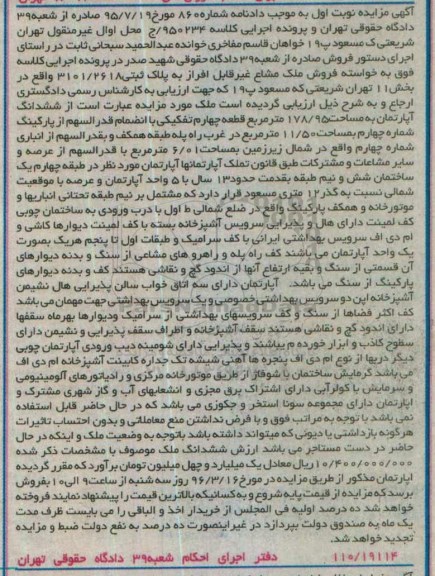 آگهی مزایده نوبت اول به موجب دادنامه شماره۸۶۰ مورخ۹۵/۷/۱۹ صادره از شعبه۳۹
دادگاه حقوقی تهران و پرونده اجرایی کلاسه ۹۵۰۲۳۴/ج محل اول غیرمنقول تهران
شریعتی ک مسعود پ۱۹ خواهان قاسم مفاخری خوانده عبدالحمید سبحانی ثابت در راستای
اجرای دستور فروش صادره از شعبه۳۹ دادگاه حقوقی شهید صدر در پرونده اجرایی کلاسه
فوق به خواسته فروش ملک مشاع غیرقابل افراز به پلاک ثبتی۳۱۰۱/۲۶۱۸ واقع در
بخش۱۱ تهران شریعتی ک مسعود پ۱۹ که جهت ارزیابی به کارشناس رسمی دادگستری
ارجاع و به شرح ذیل ارزیابی گردیده است ملک مورد مزایده عبارت است از ششدانگ
آپارتمان به مساحت۱۷۸/۹۵ مترمربع قطعه چهارم تفکیکی با انضمام قدرالسهم از پارکینگ
شماره چهارم بمساحت۱۱/۵۰ مترمربع در غرب راه پله طبقه همکف و بقدرالسهم از انباری
شماره چهارم واقع در شمال زیرزمین بمساحت۶/۰۱ مترمربع با قدرالسهم از عرصه و
سایر مشاعات و مشترکات طبق قانون تملک آپارتمانها آپارتمان مورد نظر در طبقه چهارم یک
ساختمان شش و نیم طبقه بقدمت حدود۱۳ سال با ۵ واحد آپارتمان و عرصه با موقعیت
شمالی نسبت به گذر۱۲ متری مسعود قرار دارد که مشتمل بر نیم طبقه تحتانی انباریها و
موتورخانه و همکف پارکینگ واقع در ضلع شمالی ط اول با درب ورودی به ساختمان چوبی
کف لمینت دارای هال و پذیرایی سرویس آشپزخانه بسته با کف لمینت دیوارها کاشی و
ام دی اف سرویس بهداشتی ایرانی با کف سرامیک و طبقات اول تا پنجم هریک بصورت
یک واحد آپارتمان می باشند کف راه پله و راهرو های مشاعی از سنگ و بدنه دیوارهای
آن قسمتی از سنگ و بقیه ارتفاع آنها از اندود گچ و نقاشی هستند کف و بدنه دیوارهای
پارکینگ از سنگ می باشد. آپارتمان دارای سه اتاق خواب سالن پذیرایی هال نشیمن
آشپزخانه اپن دو سرویس بهداشتی خصوصی و یک سرویس بهداشتی جهت مهمان می باشد
کف اکثر فضاها از سنگ و کف سرویسهای بهداشتی از سرامیک ودیوارها بهرماه سقفها
دارای اندود گچ و نقاشی هستند سقف آشپزخانه و اطراف سقف پذیرایی و نشیمن دارای
سطوح کاذب و ابزار خورده م یباشند و پذیرایی دارای شومینه دیب ورودی آپارتمان چوبی
دیگر دربها از نوع ام دی اف پنجره ها آهنی شیشه تک جداره کابینت آشپزخانه ام دی اف
می باشد گرمایش ساختمان با شوفاژ از طریق موتورخانه مرکزی و رادیاتورهای آلومینیومی
و سرمایش با کولرآبی دارای اشتراک برق مجزی و انشعابهای آب و گاز شهری مشترک و
اپارتمان دارای مجموعه سونا استخر و جکوزی می باشد که در حال حاضر قابل استفاده
نمی باشد با توجه به مراتب فوق و با فرض نداشتن منع معاملاتی و بدون احتساب تاثیرات
هرگونه بازداشتی یا دیونی که میتواند داشته باشد باتوجه به وضعیت ملک و اینکه در حال
حاضر در دست مستاجر می باشد ارزش ششدانگ ملک موصوف با مشخصات ذکر شده
۱۰/۴۰۰/۰۰۰/۰۰۰ریال معادل یک میلیارد و چهل میلیون تومان برآورد که مقرر گردیده
اپارتمان مذکور از طریق مزایده در مورخ۹۶/۳/۱۶ روز سه شنبه از ساعت۹ الی۱۰ بفروش
برسد که مزایده از قیمت پایه شروع و به کسانیکه بالاترین قیمت را پیشنهاد نمایند فروخته
خواهد شد ده درصد اولیه فی المجلس از خریدار اخذ و الباقی را می بایست ظرف مدت
یک ماه به صندوق دولت بپردازد در غیر اینصورت ده درصد به نفع دولت ضبط و مزایده
تجدید خواهد شد.
۱۱۰/۱۹۱۱۴ دفتر اجرای احکام شعبه۳۹ دادگاه حقوقی تهران